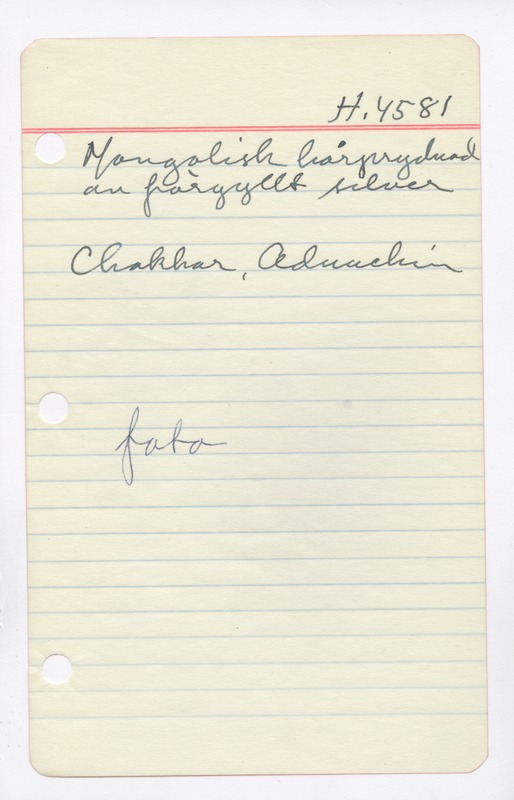 H. 4581
Mongolisk hårprydnad
av förgyllt silver
Chakhar, Aduuchin
foto